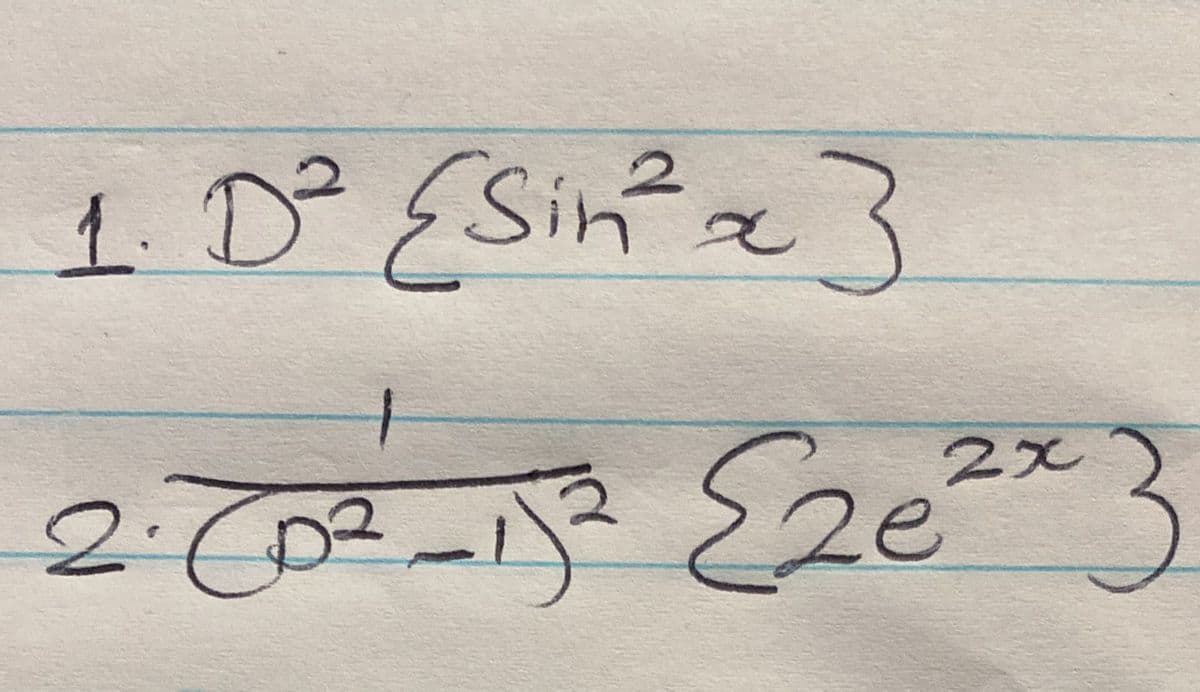 1. D² {Sin² x}
2. 1/(D² - 1)² {2e²ˣ}